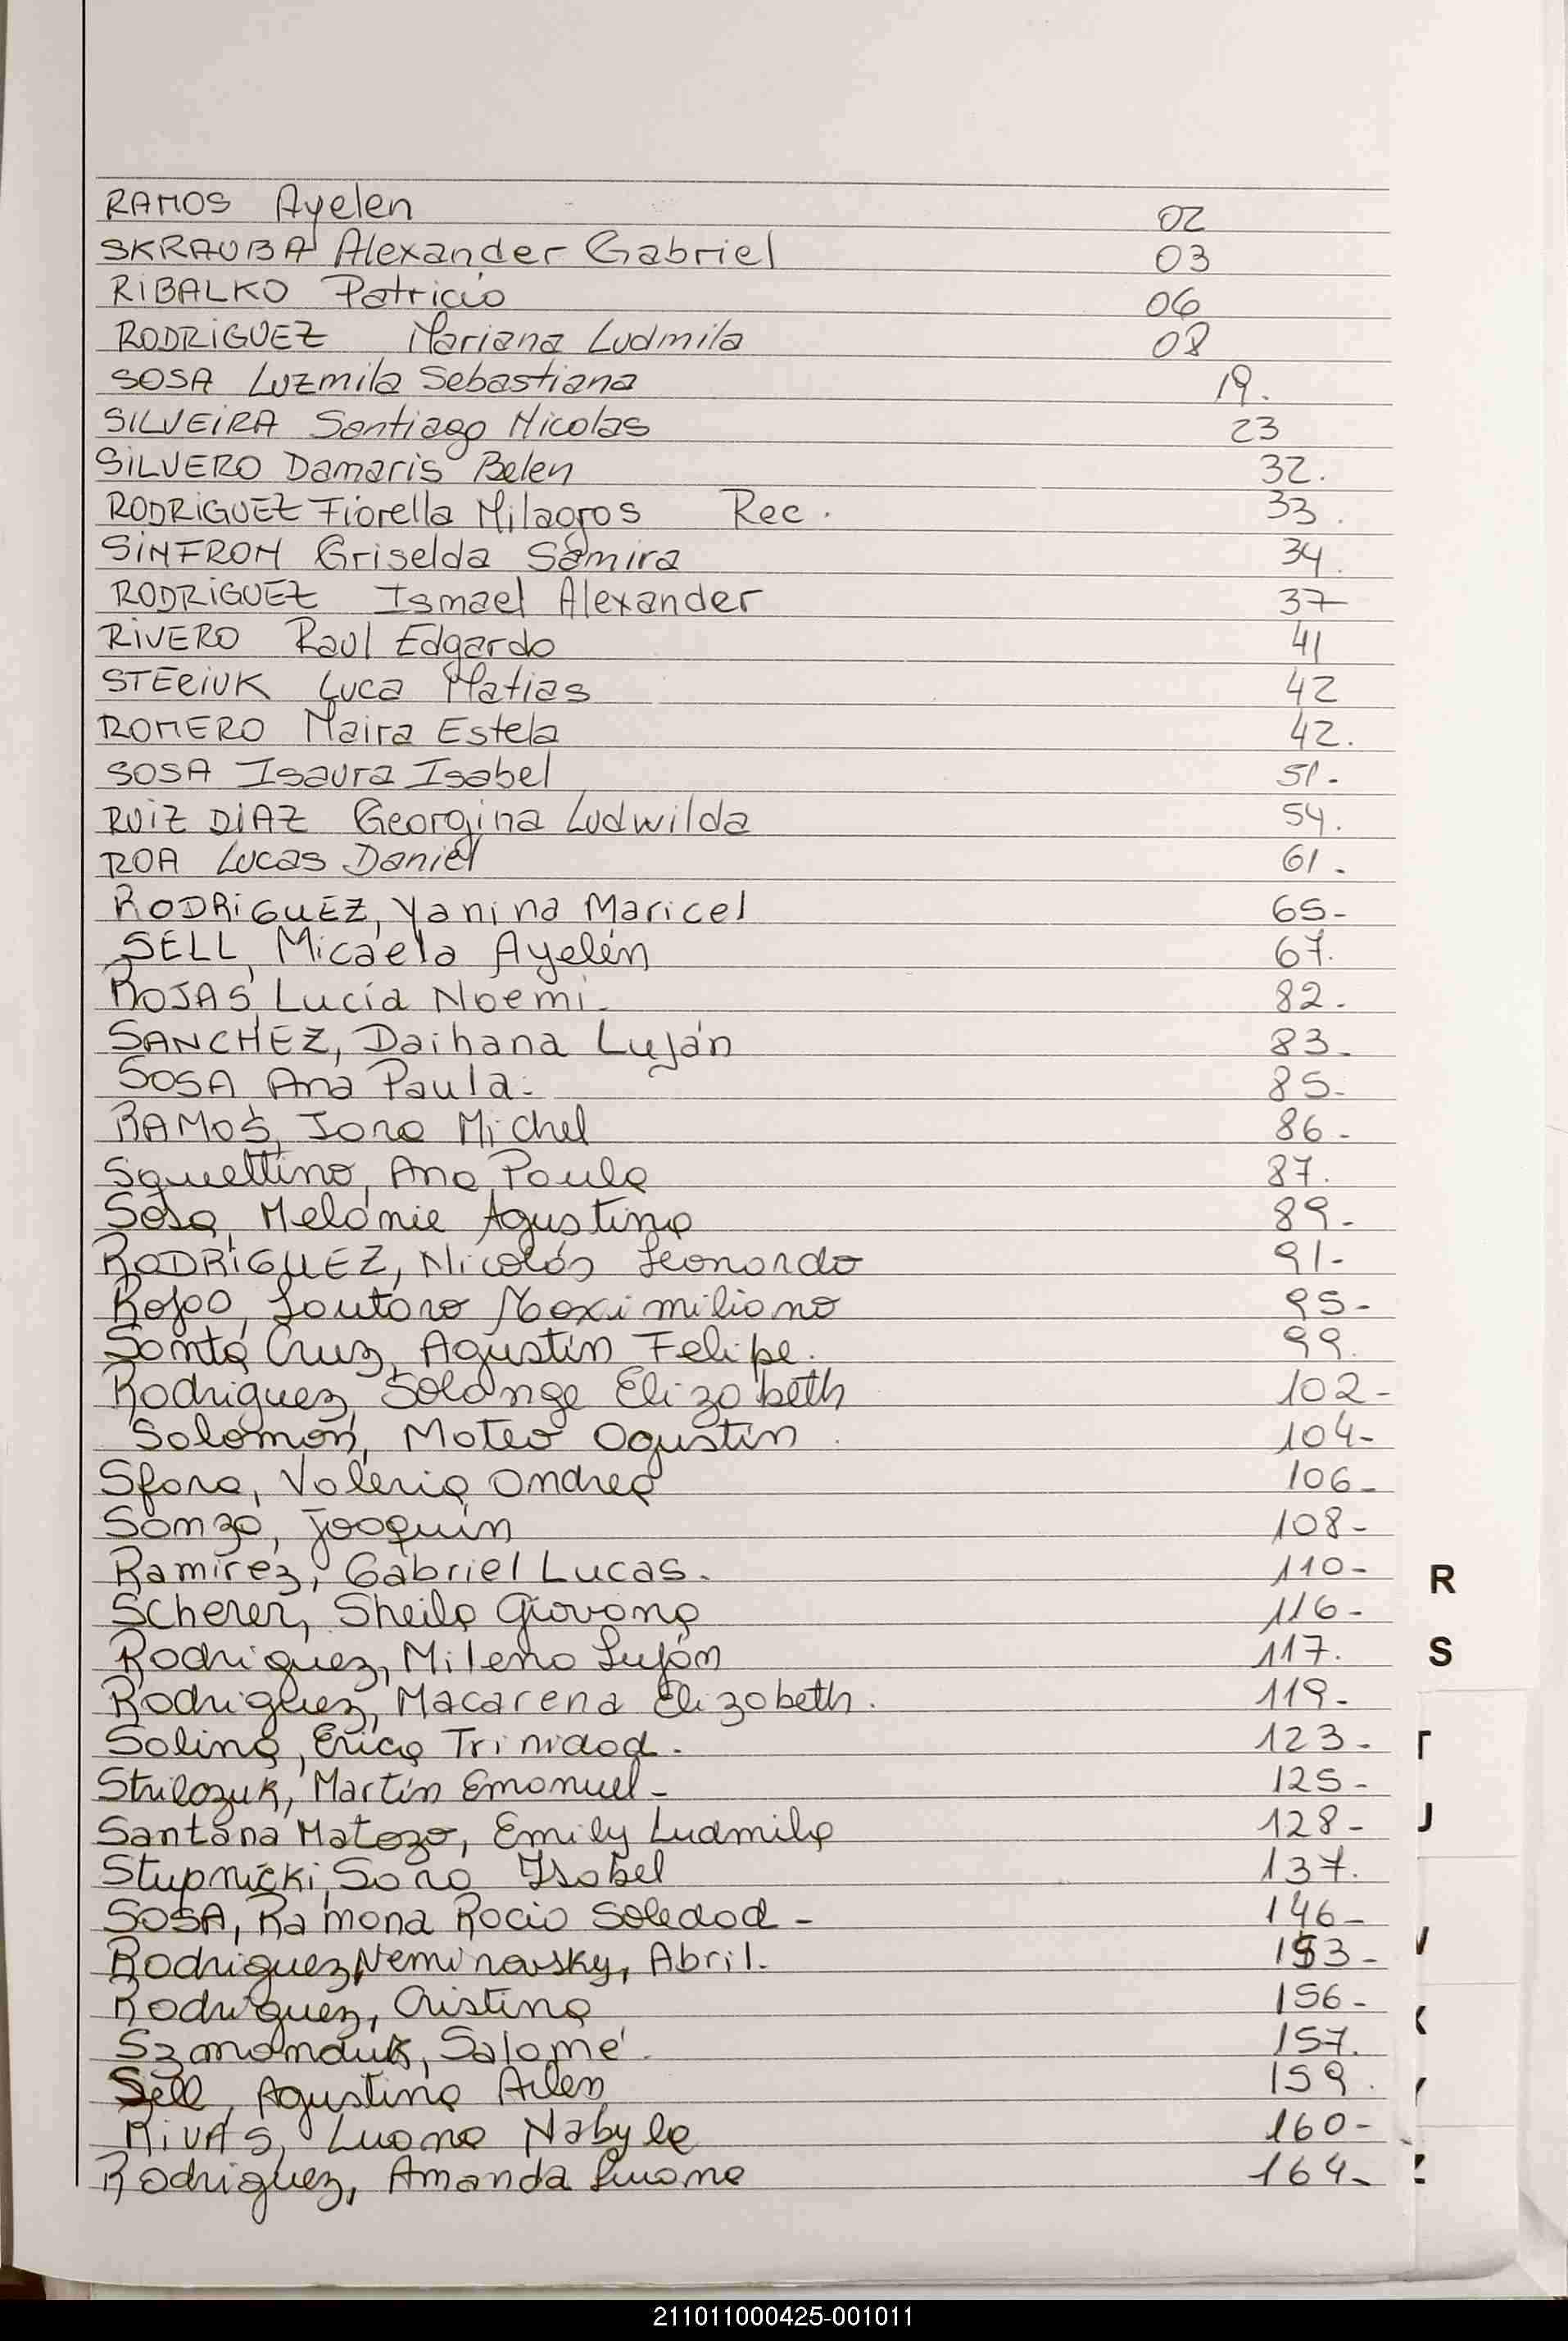 RAMOS Ayelen 02
SKRAUBA Alexander Gabriel 03
RIBALKO Patricio 06
RODRIGUEZ Mariana Ludmila 08
SOSA Luzmila Sebastiana 19.
SILVEIRA Santiago Nicolas 23
SILVERO Damaris Belen 32.
RODRIGUEZ Fiorella Milagros Rec. 33.
SINFRON Griselda Samira 34.
RODRIGUEZ Ismael Alexander 37
RIVERO Raul Edgardo 41
STERIUK Luca Matias 42
ROMERO Maira Estela 42.
SOSA Isaura Isabel 51-
RUIZ DIAZ Georgina Ludwilda 54.
ROA Lucas Daniel 61.
RODRIGUEZ, Yanina Maricel 65-
SELL, Micaela Ayelén 67.
ROJAS, Lucía Noemi. 82.
SANCHEZ, Daihana Luján 83-
SOSA Ana Paula. 85-
RAMOS, Jara Michel 86-
Squettino, Ana Paula 87.
Sosa, Melanie Agustina 89-
RODRÍGUEZ, Nicolás Leonardo 91-
Rojas, Lautaro Maximiliano 95-
Santa Cruz, Agustín Felipe. 99.
Rodriguez, Solange Elizabeth 102-
Solomon, Mateo Agustín. 104-
Sfara, Valeria Andrea 106-
Samza, Joaquín 108-
Ramirez, Gabriel Lucas. 110-
Scherer, Sheila Giovana 116-
R
Rodriguez, Milena Luján 117.
S
Rodriguez, Macarena Elizabeth. 119-
Solina, Erica Trinidad. 123-
T
Strilczuk, Martín Emanuel- 125-
Santana Matozo, Emily Ludmila 128-
U
Stupnicki, Sara Isabel 137.
SOSA, Ramona Rocio Soledad- 146-
Rodriguez Neminovsky, Abril. 153-
V
Rodriguez, Cristina 156-
X
Szmanduk, Salomé. 157.
Sell, Agustina Ailen 159.
Y
RIVAS, Luana Nabyla 160-
Rodriguez, Amanda Luana 164-
Z
211011000425-001011